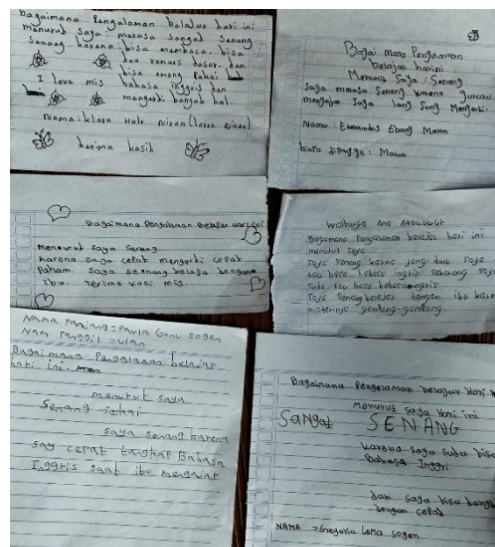 bagaimana Pengalaman balajar hari ini
menurut saya merasa sangat senang
Senang karena bisa membaca. bisa
dan kamus dasar. dan
bisa omong Pakai
I love mis bahasa inggris dan
mengerti banyak hal.
Nama: klara Hule
terima kasih
Bagai mana Pengalaman
belajar hari ini
Menurut Saya: Senang
Saya merasa Senang karena guru
mengajar Saya lang Sung Mengerti.
Nama: Ebang Maran
biasa dipanggil: Maran
Bagaimana Pengalaman Belajar Hari ini
Menurut saya senang.
karena saya cepat mengerti cepat
Paham. saya senang belajar dengan
ibu. terima kasi mis.
Ana
Bagaimana Pengalaman belajar hari ini
menurut saya
Saya senang karena yang dulu saya
tau baca bahasa ingris sekarang saya
suda tau baca bahasa ingris
Saya Senang belajar dengan ibu
materinya gampang-gampang.
Nama Panjang: Paula Gunu sogen
Nam Panggil: wulan
Bagai mana Pengalaman belajar
hari ini.
menurut saya
Senang sekai
saya senang karena
say cepat tangkap Bahasa
Inggris saat ibu mengajar
Bagaimana Pengalaman belajar Hari
Menurut saya Hari ini
Sangat SENANG
karena saya suda bisa
Bahasa Inggri
dan saya bisa
dengan cepat
NAMA : Gregoria Lema sogen